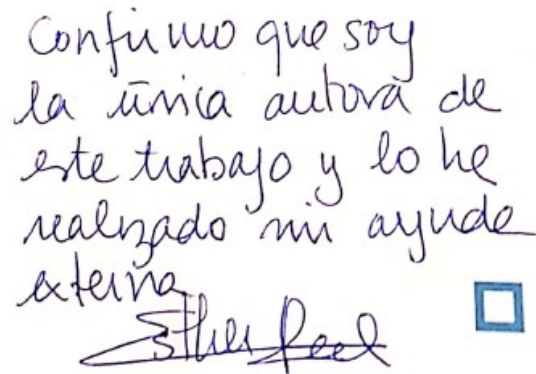 Confirmo que soy
la única autora de
este trabajo y lo he
realizado sin ayuda
externa
Esther